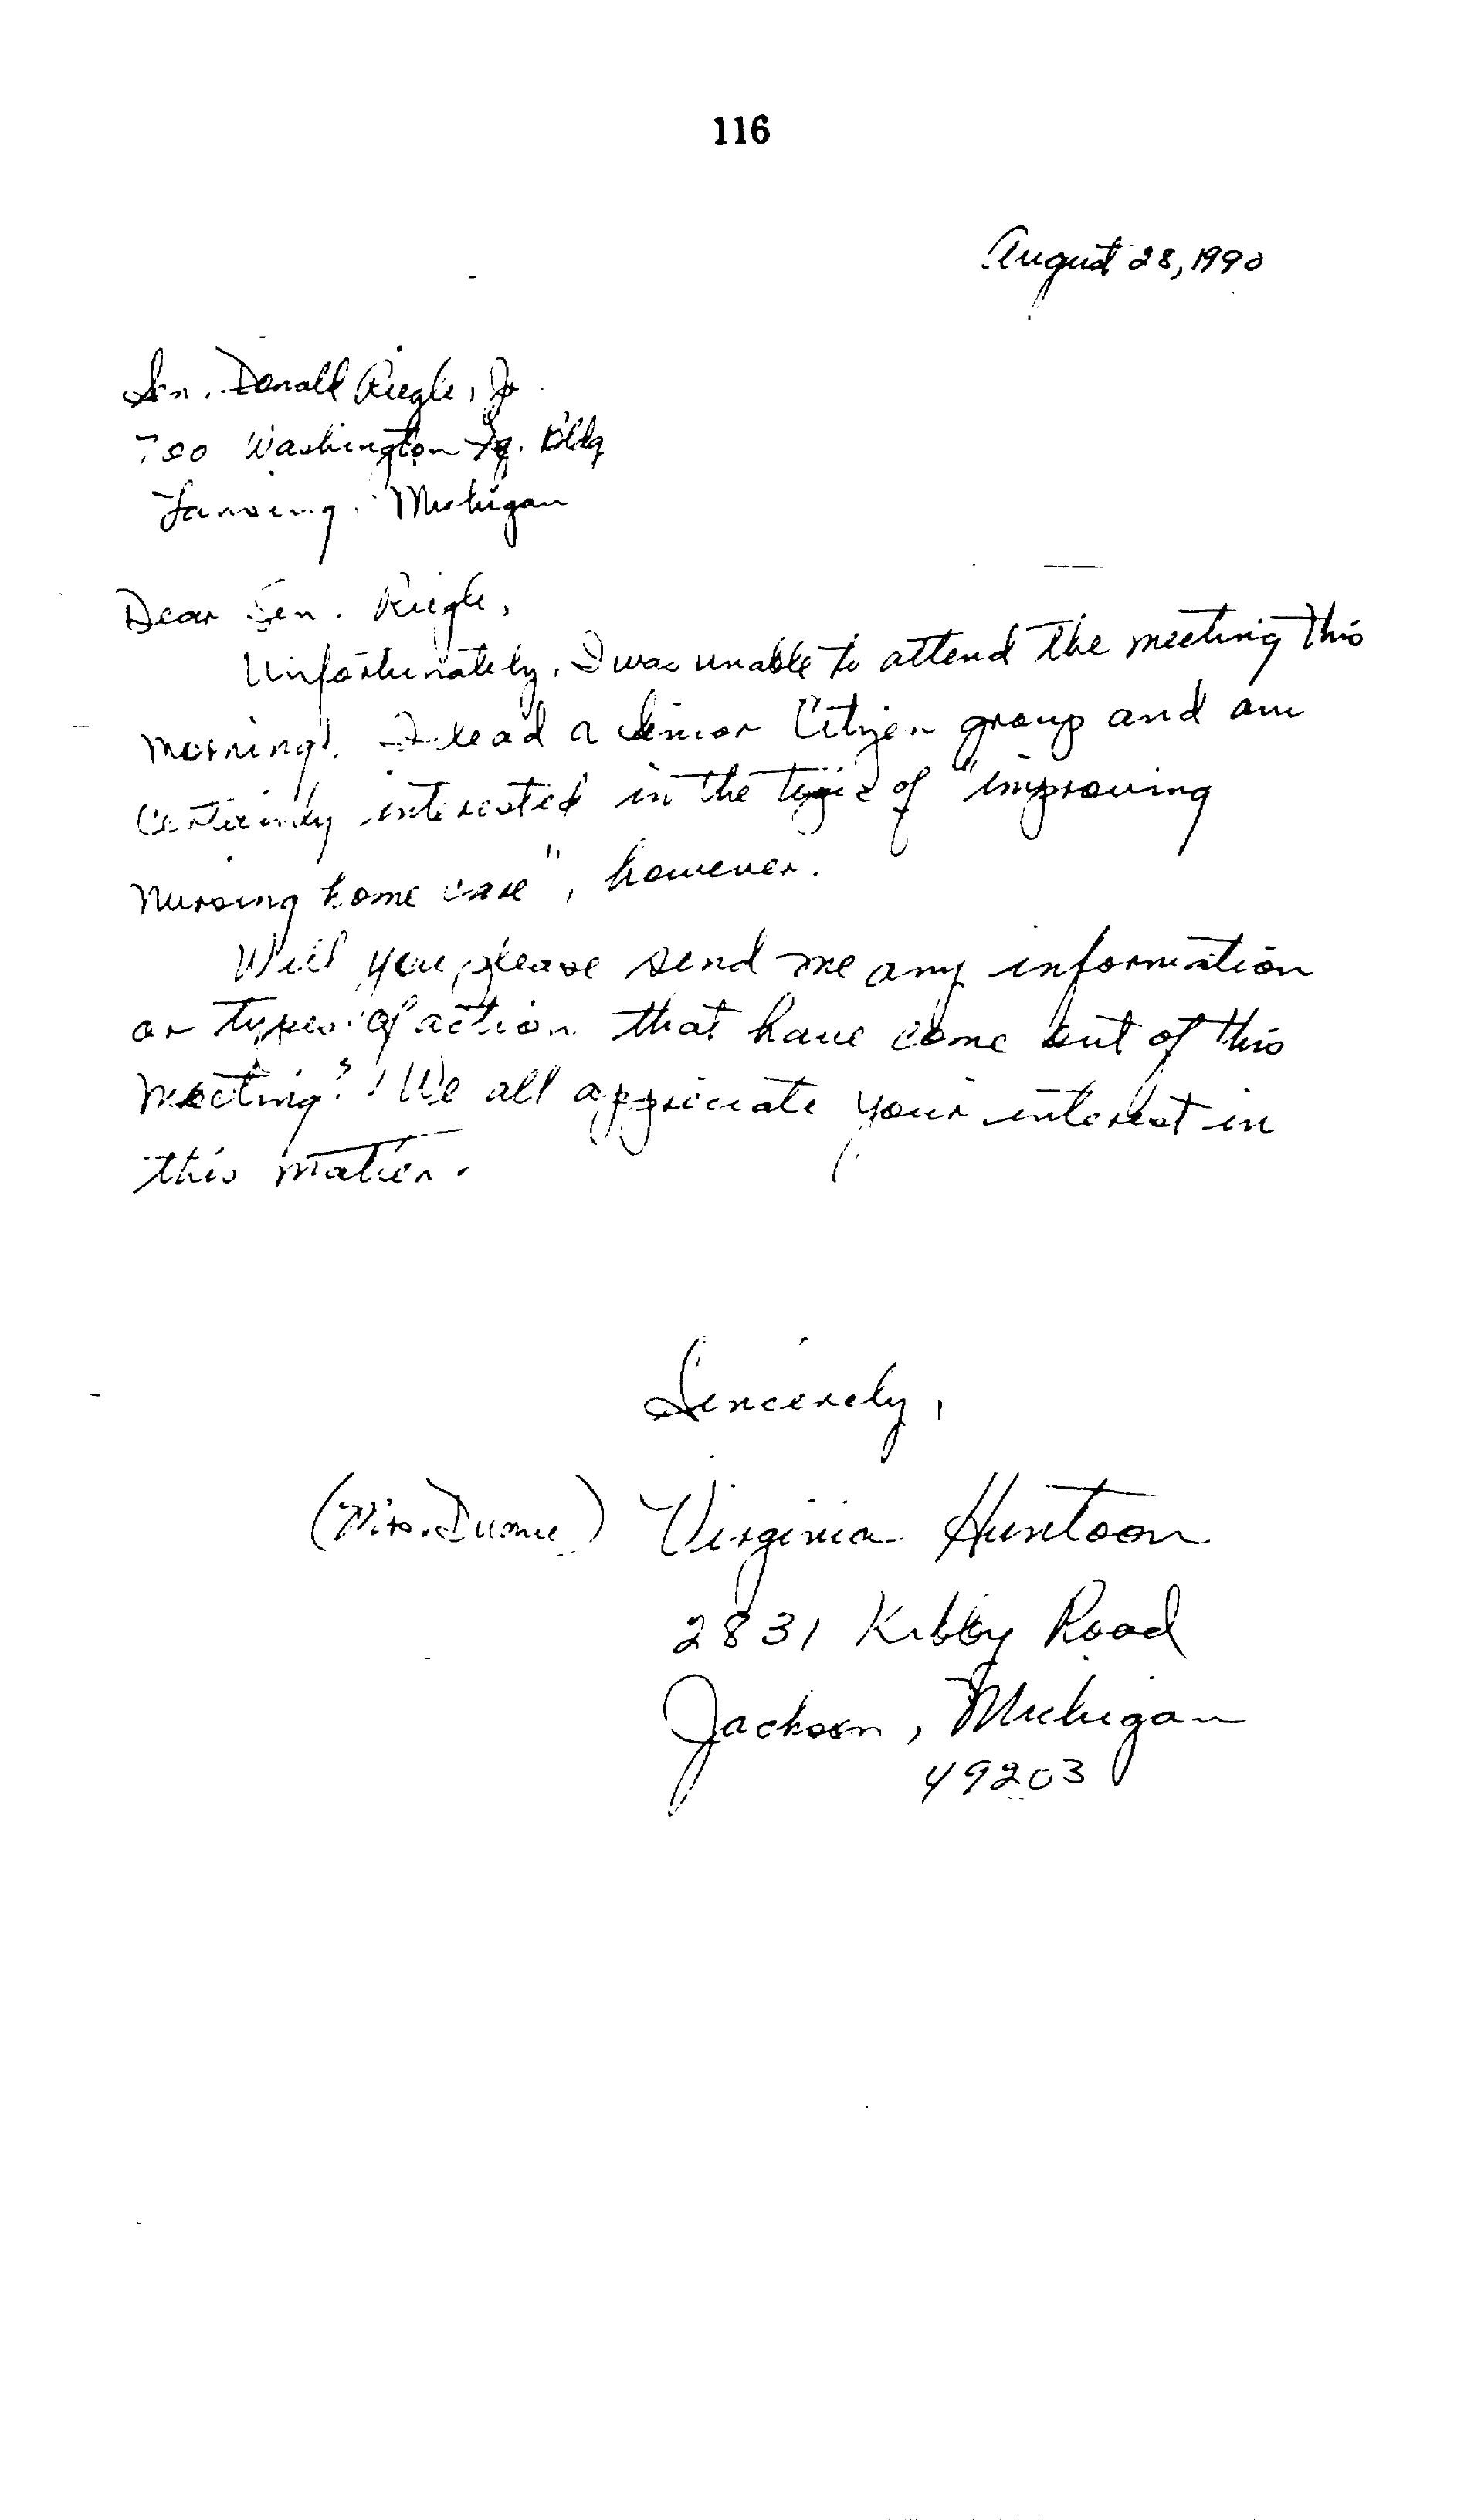 116
August 28, 1990
Sen. Donald Riegle, Jr.
Washington Sq. Bldg
Lansing, Michigan
Dear Sen. Riegle,
Unfortunately, I was unable to attend the meeting this
morning. I lead a Senior Citizen group and am
certainly interested in the topic of "improving
nursing home care", however.
Will you please send me any information
or types of action that have come out of this
meeting? We all appreciate your interest in
this matter.
Sincerely,
(Mrs. Duane) Virginia Huntoon
2831 Kibby Road
Jackson, Michigan
49203